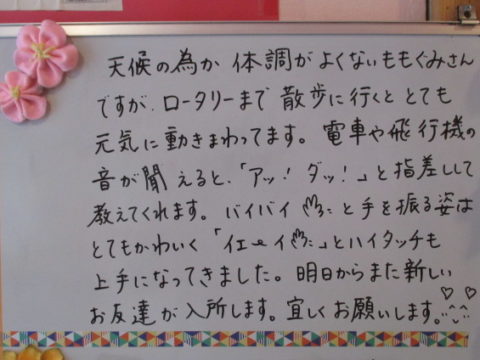 天候の為か体調がよくないももぐみさん
ですが、ロータリーまで散歩に行くととても
元気に動きまわってます。電車や飛行機の
音が聞えると、「アッ！ダッ！」と指差しして
教えてくれます。バイバイと手を振る姿は
とてもかわいく「イェーイ」とハイタッチも
上手になってきました。明日からまた新しい
お友達が入所します。宜しくお願いします。